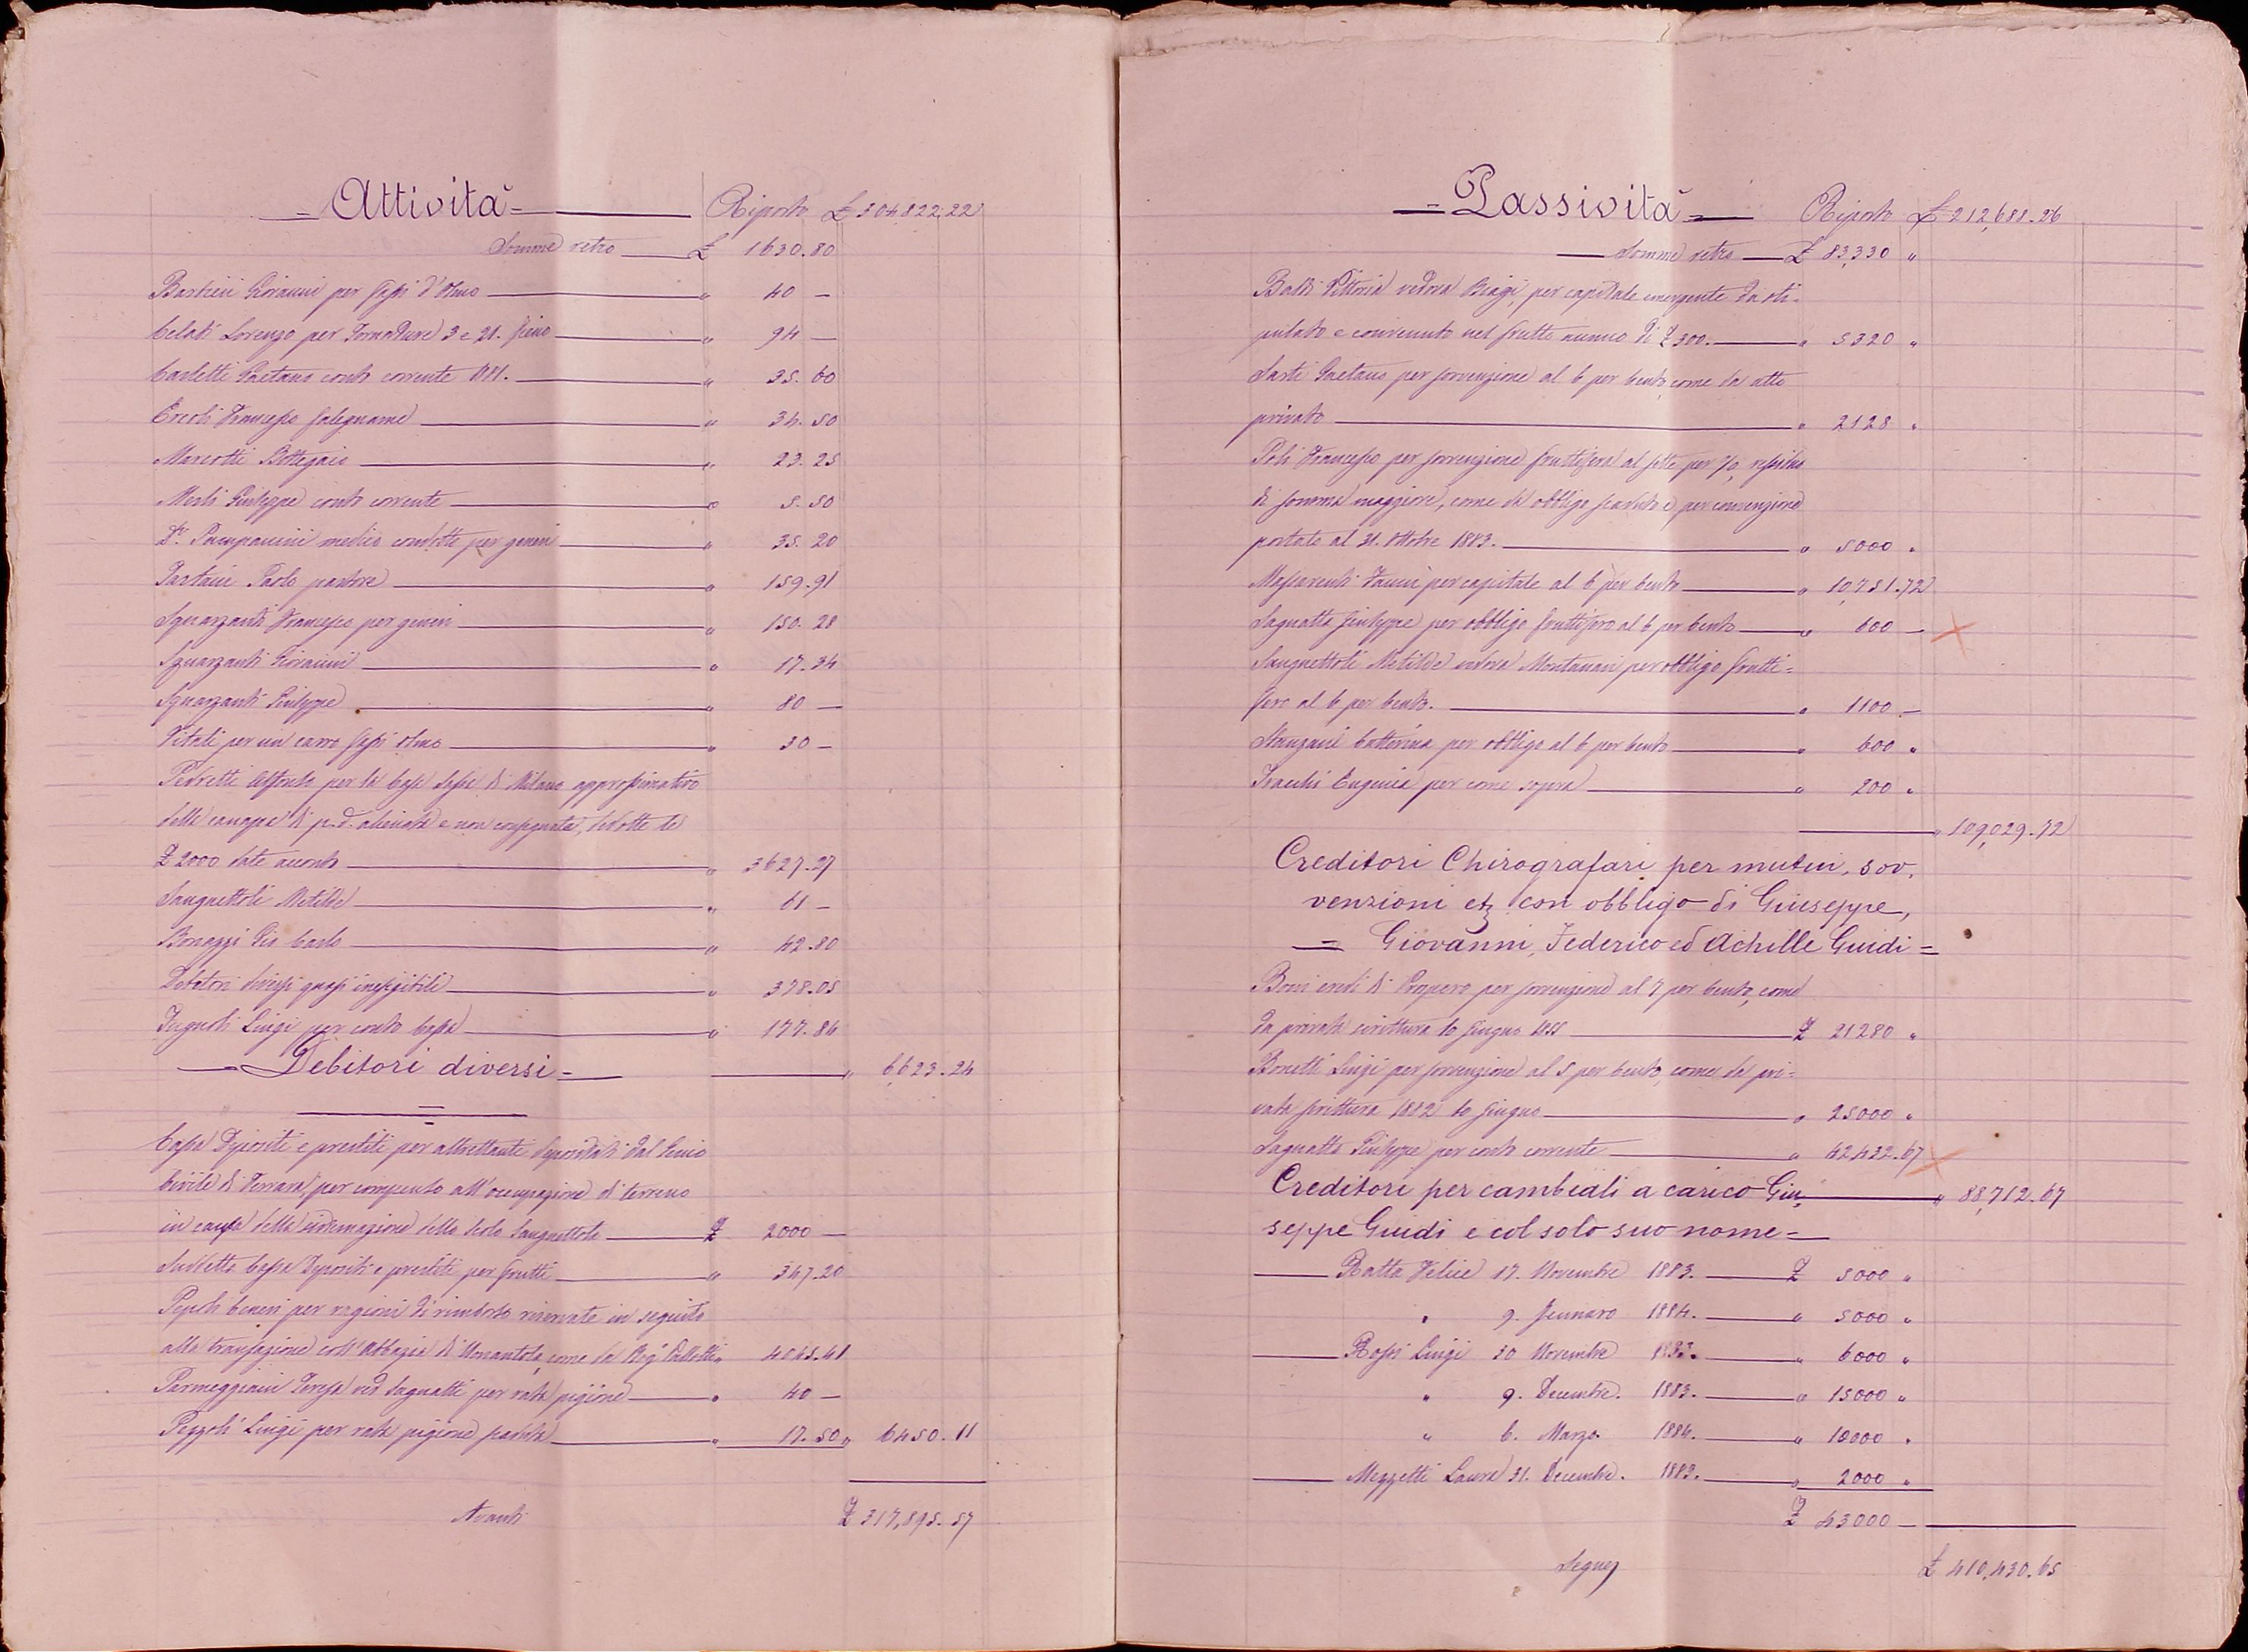 = Attività = Riporto £ 304,822.22
Somme retro £ 1630.80
Bastieri Giovanni per passi d'olmo " 40 —
Celati Lorenzo per Fornature 3 e 21. fieno " 94 —
Carletti Gaetano conto corrente 1881. " 35.60
Ercoli Francesco falegname " 34.50
Marcotti Bottegaio " 23.25
Merli Giuseppe conto corrente " 5.50
Dr. Pampanini medico condotto per generi " 35.20
Pastain Paolo pastore " 159.91
Squarzanti Francesco per generi " 150.28
Squarzanti Giovanni " 17.34
Squarzanti Giuseppe " 80 —
Vitali per un carro passi olmo " 30 —
Pedretti Alfredo per la Casa di Milano approssimativo
della canapa di p.d. alienata e non consegnata, dedotte le
£ 2000 date acconto " 3627.27
Sanguettoli Metilde " 61 —
Bonazzi Gio Carlo " 42.80
Debitori diversi quasi inesigibili " 378.05
Fugnoli Luigi per conto Cassa " 177.84
= Debitori diversi = " 6,623.24
Cassa Depositi e prestiti per altrettanti depositati dal Genio
Civile di Ferrara, per compenso all'occupazione di terreno
in causa della sistemazione dello scolo Sanguettola £ 2000 —
Suddetta Cassa Depositi e prestiti per frutti " 347.20
Pepoli beneri per ragioni di rimborso riservate in seguito
alla transazione coll'Abbazia di Nonantola, come da Rog. Pallotti " 4045.41
Parmeggiani Teresa ved Sagnatti per rata pigione " 40 —
Pezzoli Luigi per rata pigione scaduta " 17.50 " 6450.11
Avanti £ 317,895.57
= Passività = Riporto £ 212,688.26
Somme retro £ 83,330 "
Baldi Vittoria vedova Biagi, per capitale emergente da sti=
pulato e convenuto nel frutto annuo di £ 300. " 5320 "
Sarti Gaetano per sovvenzione al 6 per Cento, come da atto
privato " 2128 "
Poli Francesco per sovvenzione fruttifera al sette per %, residuo
di somma maggiore, come da obbligo scaduto e per convenzione
portato al 31. Ottobre 1883. " 5000 "
Massarenti Fanni per capitale al 6 per Cento " 10,751.72
Sagnatta Giuseppe per obbligo fruttifero al 6 per Cento " 600 —
Sanguettoli Metilde vedova Montanari per obbligo frutti=
fero al 6 per Cento. " 1100 —
Stanzani Catterina per obbligo al 6 per Cento " 600 "
Isacchi Eugenia per come sopra " 200 "
" 109,029.72
Creditori Chirografari per mutui, sov,
venzioni etz con obbligo di Giuseppe,
= Giovanni, Federico ed Achille Guidi =
Boni eredi di Prospero per sovvenzione al 7 per Cento, come
da privata scrittura 10 Giugno £ 21280 "
Bonetti Luigi per sovvenzione al 5 per Cento, come da pri=
vata scrittura 1882 10 Giugno " 25000 "
Sagnatta Giuseppe per conto corrente " 42432.67
Creditori per cambiali a carico Giu, " 88,712.67
seppe Guidi e col solo suo nome =
Ratta Felice 17. Novembre 1883. £ 5000 "
" 9. Gennaro 1884. " 5000 "
Rossi Luigi 30 Novembre 1883. " 6000 "
" 9. Decembre. 1883. " 15000 "
" 6. Marzo. 1884. " 10000 "
Mezzetti Laura 31. Decembre. 1883. " 2000 "
£ 43000 —
Segue £ 410,430.65